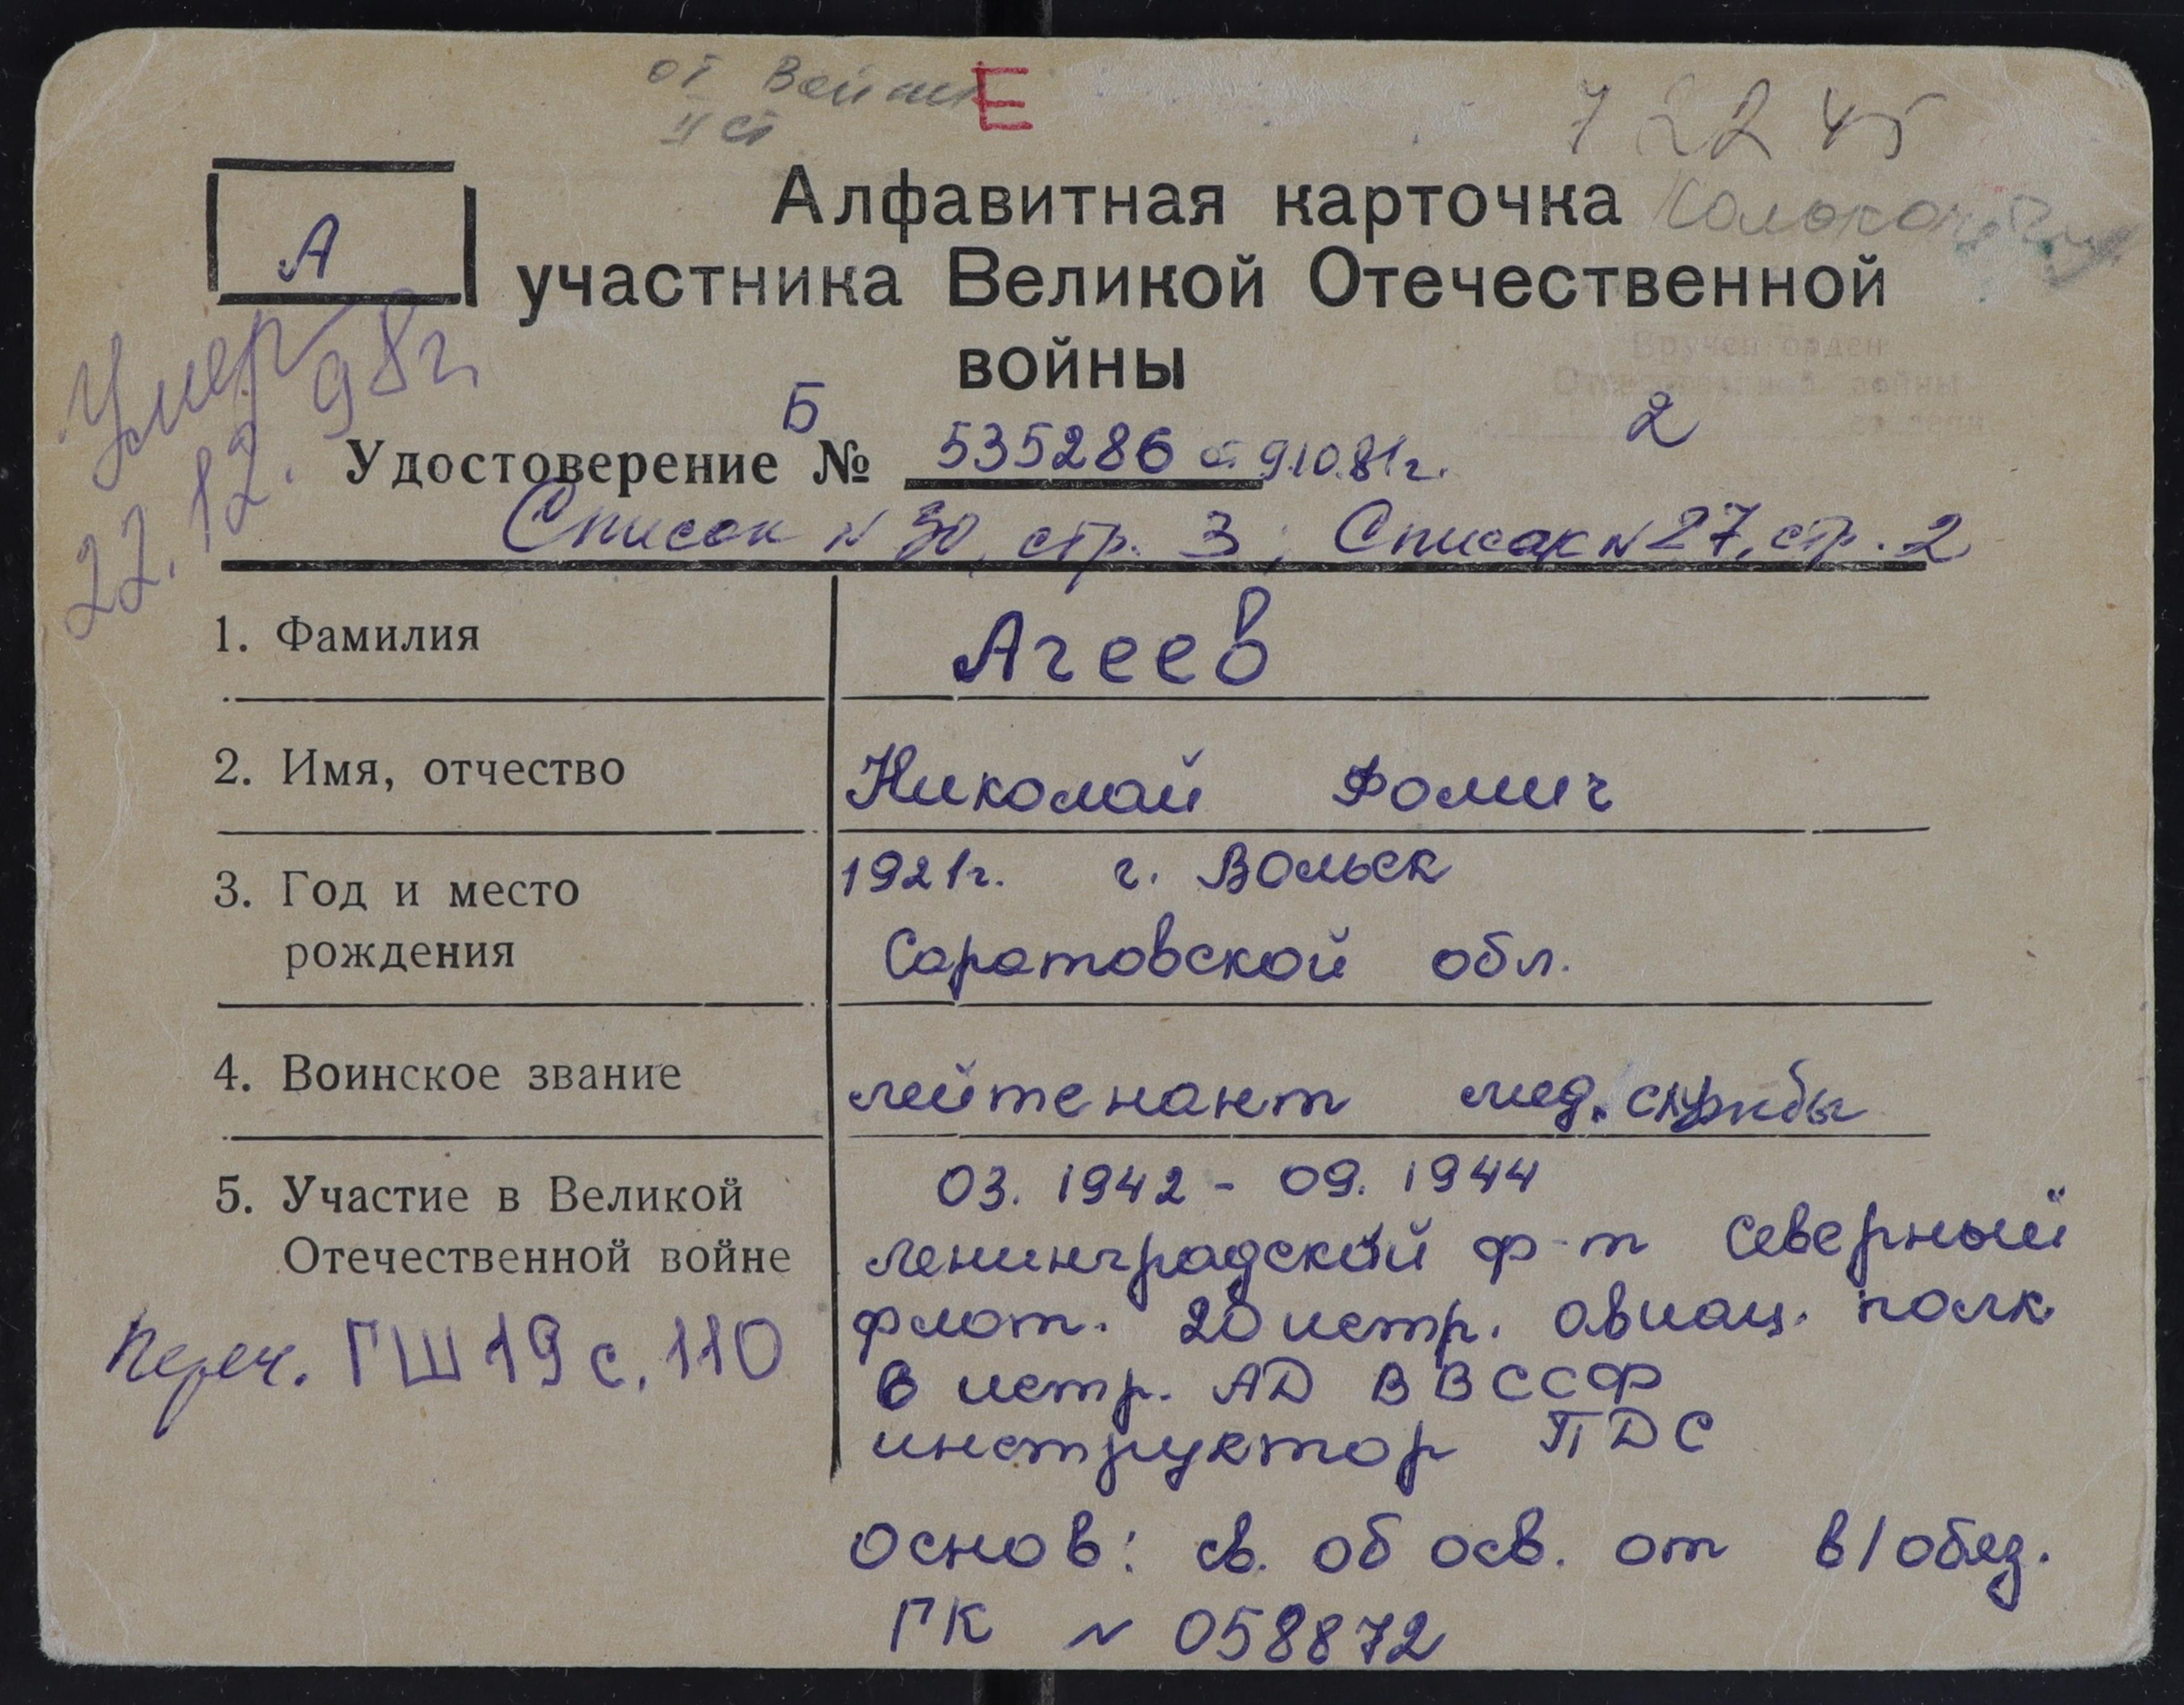 от Войны
II ст
Е
7 22 45
А
Алфавитная карточка
участника Великой Отечественной
войны
Умер
22.12.98г.
Вручен орден
Отечественной войны
степени
2
Б
Удостоверение № 535286 от 9.10.81г.
Список N 30, стр. 3; Список N 27, стр. 2
1. Фамилия
Агеев
2. Имя, отчество
Николай Фомич
3. Год и место
рождения
1921г. г. Вольск
Саратовской обл.
4. Воинское звание
лейтенант мед. службы
5. Участие в Великой
Отечественной войне
Переч. ГШ 19 с. 110
03. 1942 - 09. 1944
Ленинградской ф-т Северный
флот. 20 истр. авиац. полк
6 истр. АД ВВССФ
инструктор ПДС
Основ: св. об осв. от в/обяз.
ГК N 058872